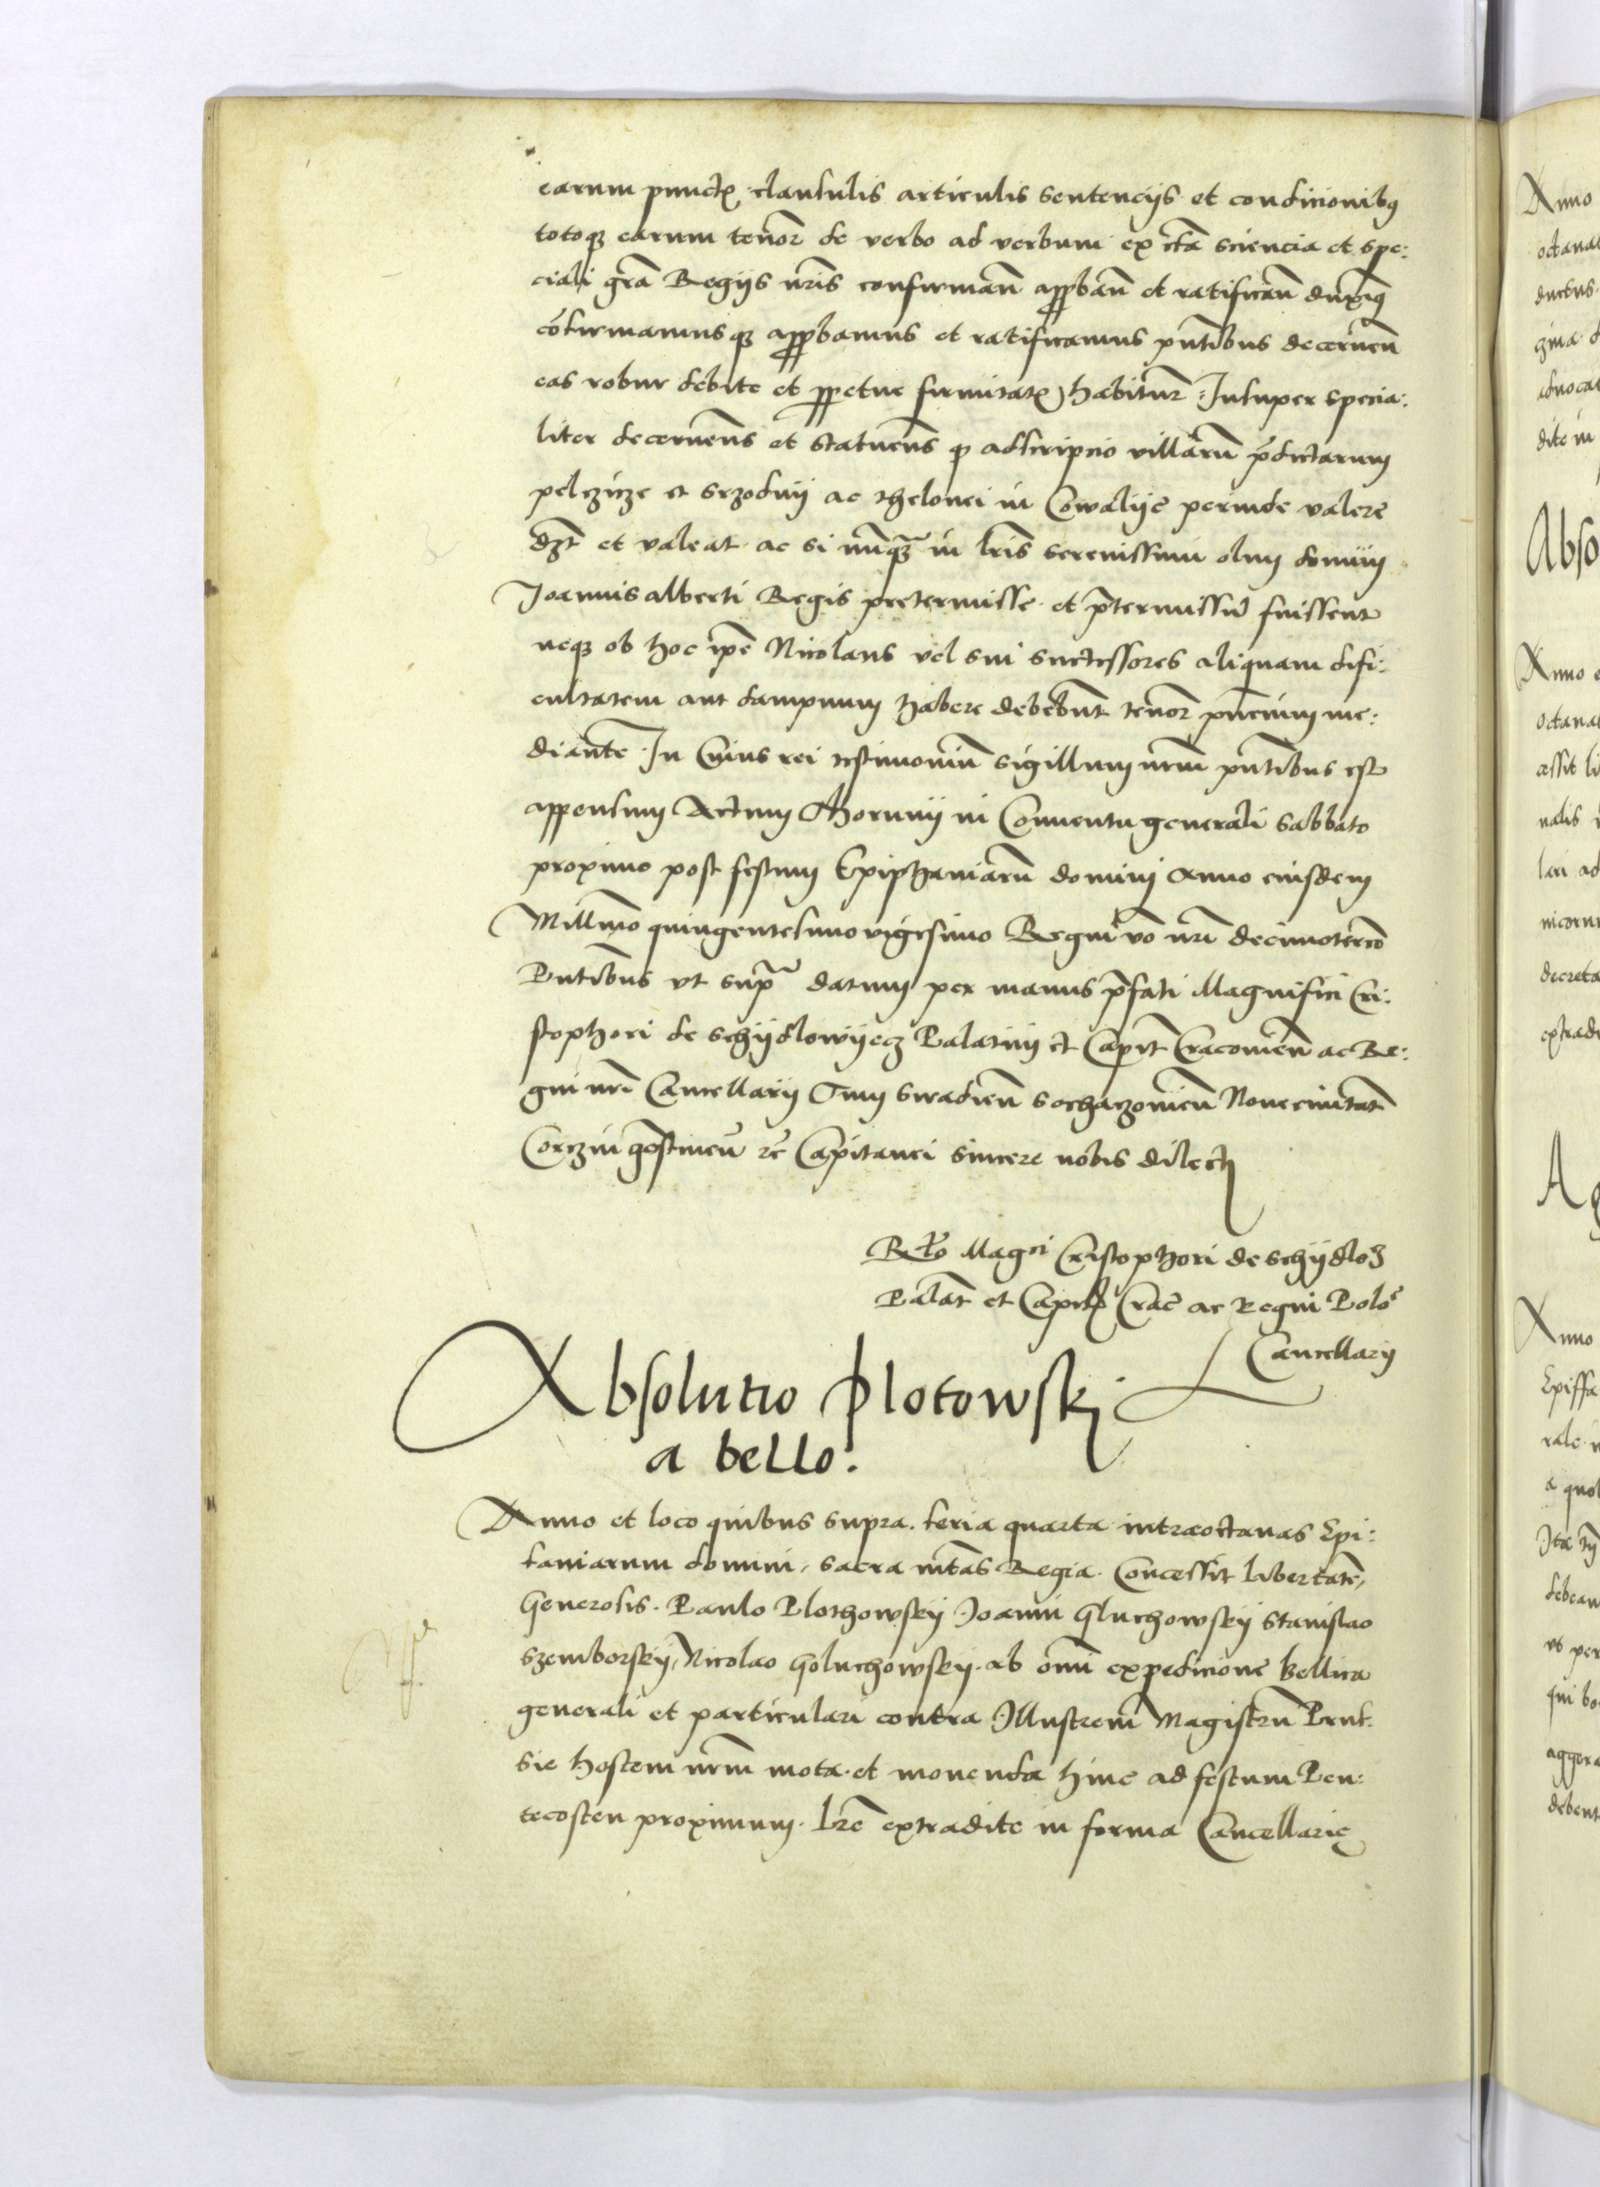 earum punctis clausulis articulis sentencijs et condicionibus
totoq₃ earum tenor̄ de verbo ad verbum ex cta sciencia et spe:
ciali gr̄a Regijs nr̄is confirman̄ approban̄ et ratifican̄ duximꝰ
cōfirmamusq₃ approbamus et ratificamus pn̄tibus decernen̄
eas robur debite et perpetue firmitatis habitur̄ Insuper specia:
liter decernens et statuens q adscripcio villarum pr̄dictarum
pelczicze et srzodnij ac thelonei in Cowalije perinde valere
et valeat ac si nunq₃ in lr̄is serenissimi olim domini
Joannis alberti Regis pretermisse et pr̄termissum fuissent
neq₃ ob hoc ip̄e Nicolaus vel sui successores aliquam difi:
cultatem aut dampnum habere debebunt tenor̄ pn̄cium me:
diante In Cuius rei testimonium sigillum nr̄um pn̄tibus est
appensum Actum Thorunij in Conuentu generali sabbato
proximo post festum Epiphaniarum domini Anno eiusdem
Mill̄mo quingentesimo vigesimo Regni vo nr̄i decimotercio
Pn̄tibus vt supra datum per manus pr̄fati Magnifici Cri:
stophori de schijdlowijecz Palatini et Capit̄ Cracouien̄ ac Re:
gni nr̄i Cancellarij Siradien̄ Sochaczouien̄ Nouecivitat̄
Corczin gostinen̄ Capitanei sincere nobis dilecti
Relo Magci Cristophori de schijdlo₃
Palat̄ et Capitei Crac̄ ac Regni Polo
Cancellarij
Absolutio Plotowskj
a bello.
Anno et loco quibus supra. feria quarta intraoctauas Epi:
faniarum domini, sacra m̄tas Regia. Concessit libertatē,
Generosis. Paulo Plothowskij Joanni Gluchowskij Stanislao
Szemborskij, Nicolao Goluchowskij. ab om̄i expedicione bellica
generali et particulari contra Illustrem Magistrū Prus:
sie hostem nr̄m mota. et mouenda hinc ad festum Pen:
tecosten proximum. Lr̄e extradite in forma Cancellarie